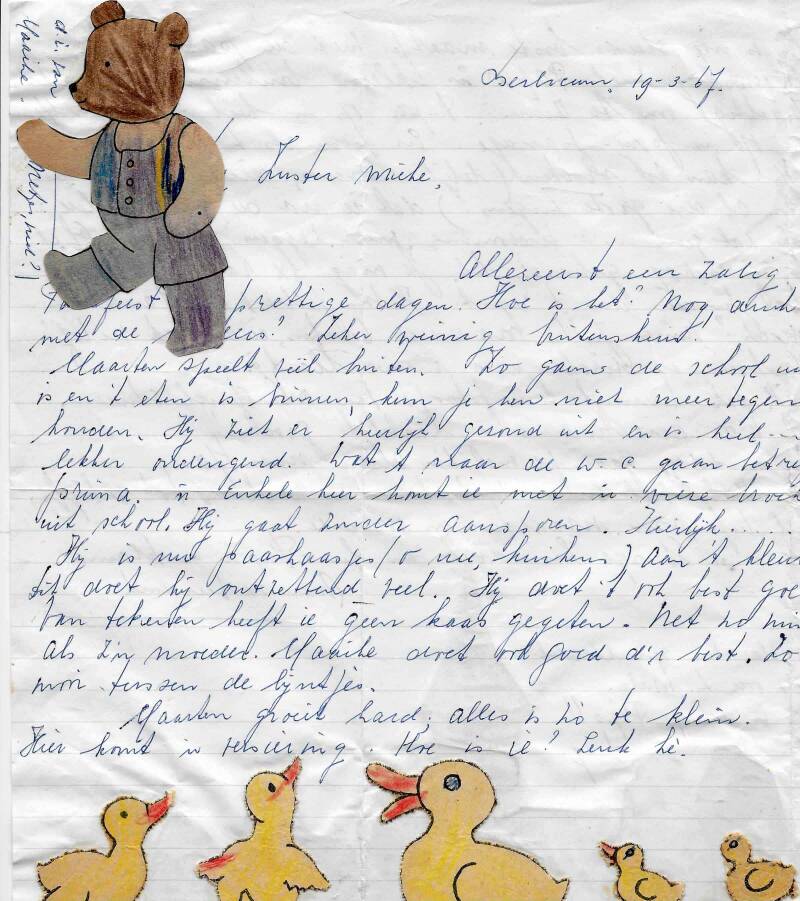 d.i. van
Maaike.
Netjes, hied?
Berlicum, 19-3-67.
Zuster Mieke,
Allereerst een zalig
feest prettige dagen. Hoe is het? Nog druk
met de Zeker weinig buitenshuis!
Maarten speelt véél buiten. Zo gauw de school uit
is en 't eten is binnen, kun je hem niet meer tegen
houden. Hij ziet er heerlijk gezond uit en is heel...
lekker ondeugend. Wat 't naar de w.c. gaan betre
prima. 'n Enkele keer komt ie met 'n broek
uit school. Hij gaat zonder aansporen. Heerlijk......
Hij is nu paashaasjes (o nee, kuikens) aan 't kleu
dit doet hij ontzettend veel. Hij doet 't ook best goe
Van tekenen heeft ie geen kaas gegeten. Net zo min
als z'n moeder. Maaike doet ook goed d'r best. Zo
mooi tussen de lijntjes.
Maarten groeit hard, alles is zo te klein.
Hier komt 'n versiering. Hoe is ie? Leuk hè.